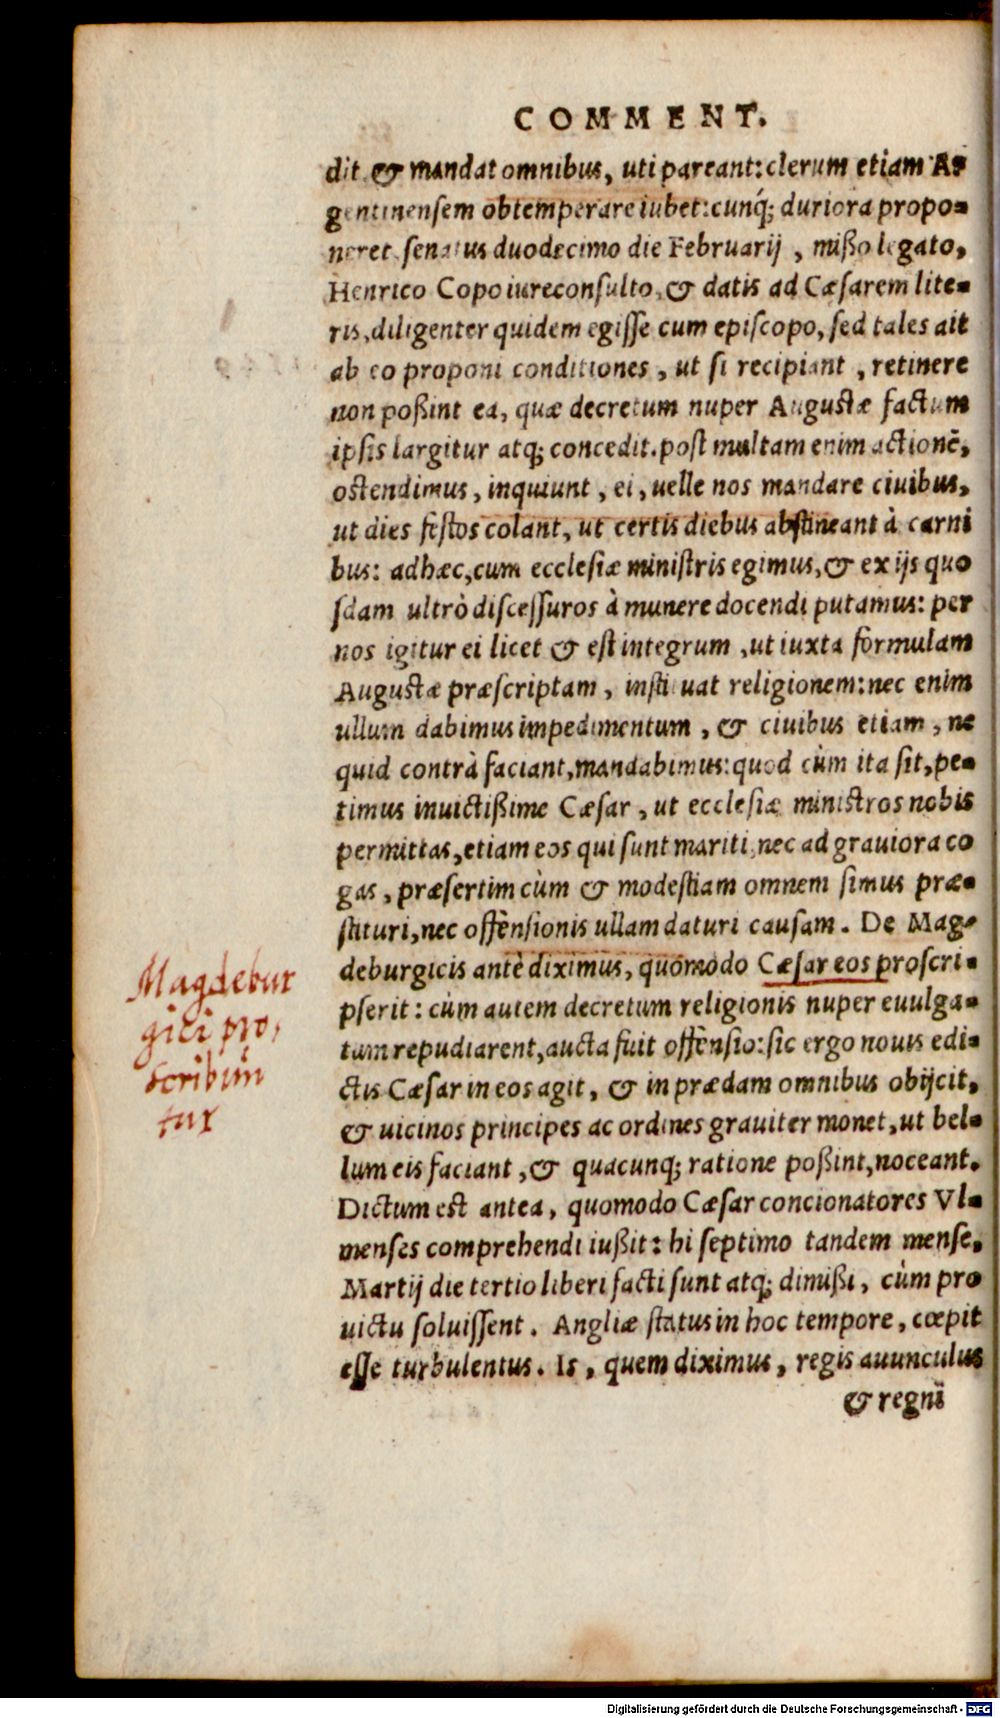 COMMENT.
dit & mandat omnibus, uti pareant: clerum etiam Ar
gentinensem obtemperare iubet: cunq́; duriora propo-
neret senatus duodecimo die Februarij, mißo legato,
Henrico Copo iureconsulto, & datis ad Cæsarem lite-
ris, diligenter quidem egisse cum episcopo, sed tales ait
ab eo proponi conditiones, ut si recipiant, retinere
non poßint ea, quæ decretum nuper Augustæ factum
ipsis largitur atq; concedit. post multam enim actionē,
ostendimus, inquiunt, ei, uelle nos mandare ciuibus,
ut dies festos colant, ut certis diebus abstineant à carni
bus: adhæc, cum ecclesiæ ministris egimus, & ex ijs quo
sdam ultrò discessuros à munere docendi putamus: per
nos igitur ei licet & est integrum, ut iuxta formulam
Augustæ præscriptam, instituat religionem: nec enim
ullum dabimus impedimentum, & ciuibus etiam, ne
quid contrà faciant, mandabimus: quod cùm ita sit, pe-
timus inuictißime Cæsar, ut ecclesiæ ministros nobis
permittas, etiam eos qui sunt mariti, nec ad grauiora co
gas, præsertim cùm & modestiam omnem simus præ-
stituri, nec offensionis ullam daturi causam. De Mag-
deburgicis antè diximus, quomodo Cæsar eos proscri-
pserit: cùm autem decretum religionis nuper euulga-
tum repudiarent, aucta fuit offensio: sic ergo nouis edi-
ctis Cæsar in eos agit, & in prædam omnibus obijcit,
& uicinos principes ac ordines grauiter monet, ut bel-
lum eis faciant, & quacunq; ratione poßint, noceant.
Dictum est antea, quomodo Cæsar concionatores Vl-
menses comprehendi iußit: hi septimo tandem mense,
Martij die tertio liberi facti sunt atq; dimißi, cùm pro
uictu soluissent. Angliæ status in hoc tempore, cœpit
esse turbulentus. Is, quem diximus, regis auunculus
& regni
Magdebur
gici pro,
scribūn
tur
Digitalisierung gefördert durch die Deutsche Forschungsgemeinschaft - DFG